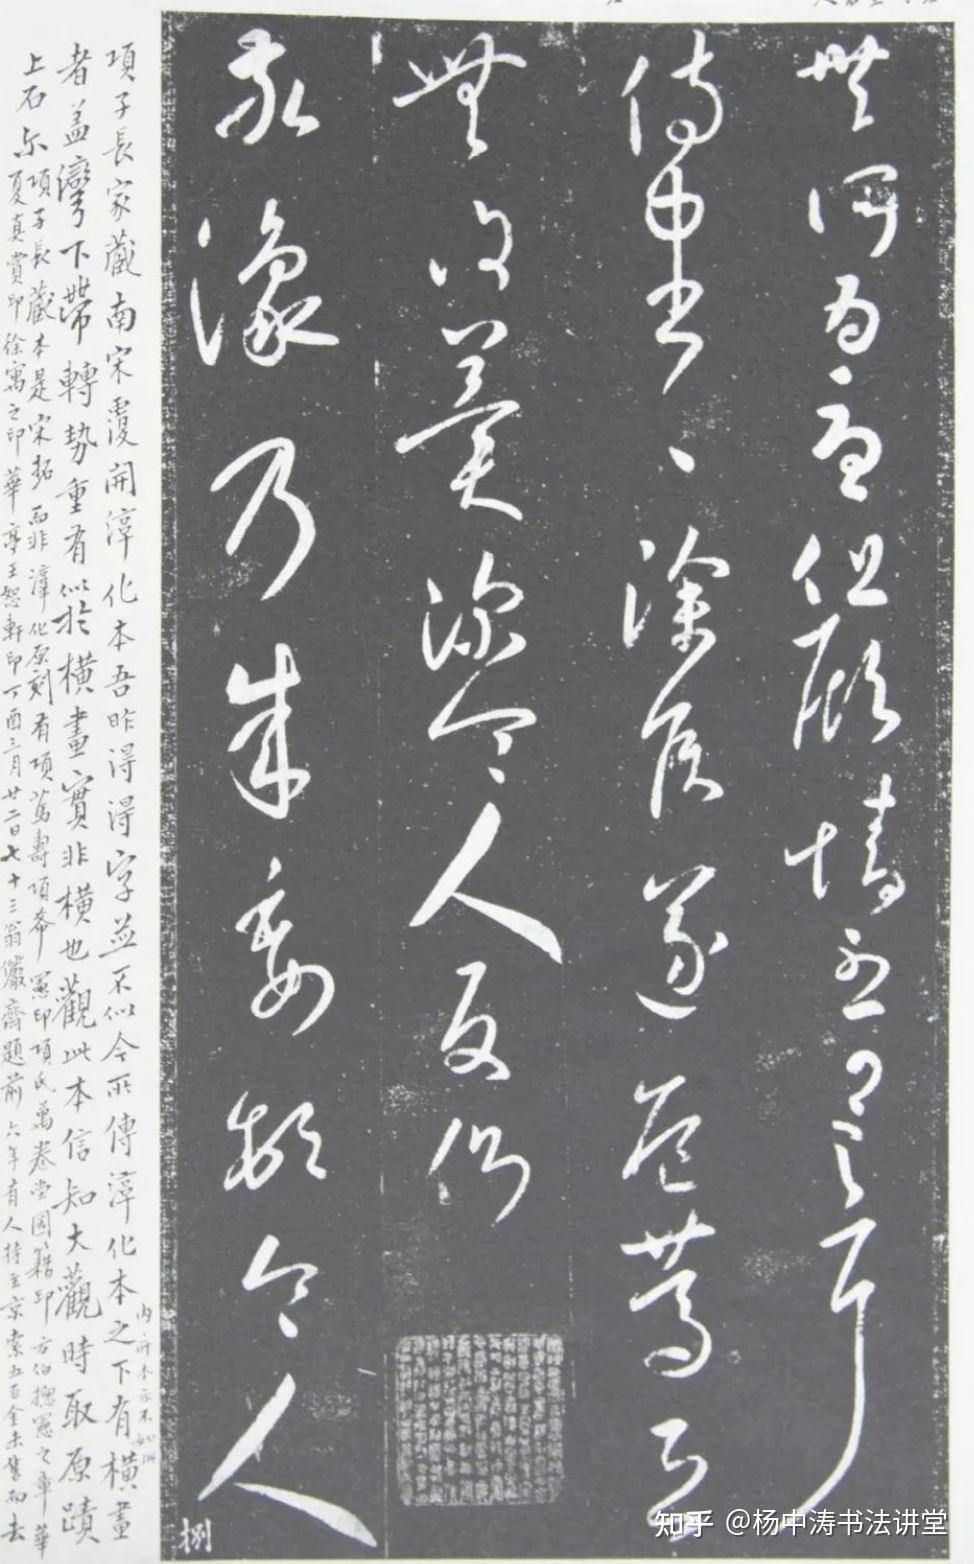 但顧情耳
徐侯遂危篤恐
無復冀深令人反側
敬豫乃成委頓令人
項子長家藏南宋覆開淳化本吾昨得得字並不似今所傳淳化本之下有橫畫
內府本亦不如此
者蓋彎下帶轉勢重有似於橫畫實非橫也觀此本信知大觀時取原蹟
上石尔項子長藏本是宋拓而非淳化原刻有項篤壽項希憲印項氏萬卷堂圖籍印方伯揔憲之章華
夏真賞印徐寓之印華亭王恕軒印丁酉三月廿二日七十三翁儼齋題前六年有人持至京索五百金未售而去
捌
知乎 @杨中涛书法讲堂